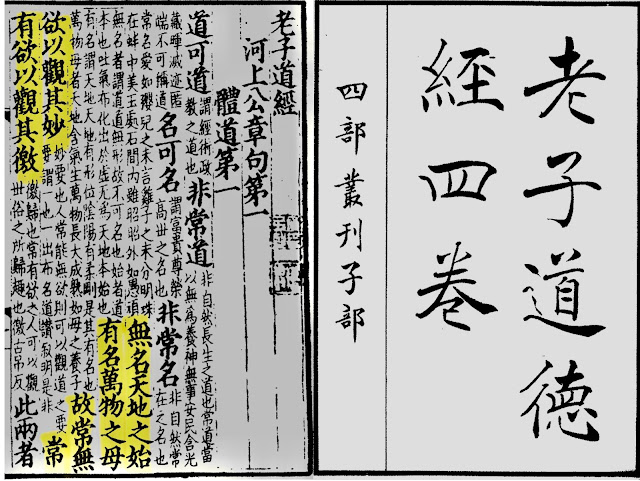 老子道德
經四卷
四部叢刊子部
老子道經
河上公章句第一
體道第一
道可道 謂經術政教之道也 非常道 非自然長生之道也常道當以無為養神無事安民含光
藏暉滅迹匿端不可稱道 名可名 謂富貴尊榮高世之名也 非常名 非自然常在之名也
常名愛如嬰兒之未言雞子之未分明珠在蚌中美玉處石間內雖昭昭外如愚頑 無名天地之始
無名者謂道道無形故不可名也始者道本也吐氣布化出於虛無為天地本始也 有名萬物之母
有名謂天地天地有形位陰陽有柔剛是其有名也萬物母者天地含氣生萬物長大成熟如母之養子 故常無
欲以觀其妙 妙要也人常能無欲則可以觀道之要要謂一也一出布名道讚敘明是非 常
有欲以觀其徼 徼歸也常有欲之人可以觀世俗之所歸趣也徼古吊反 此兩者